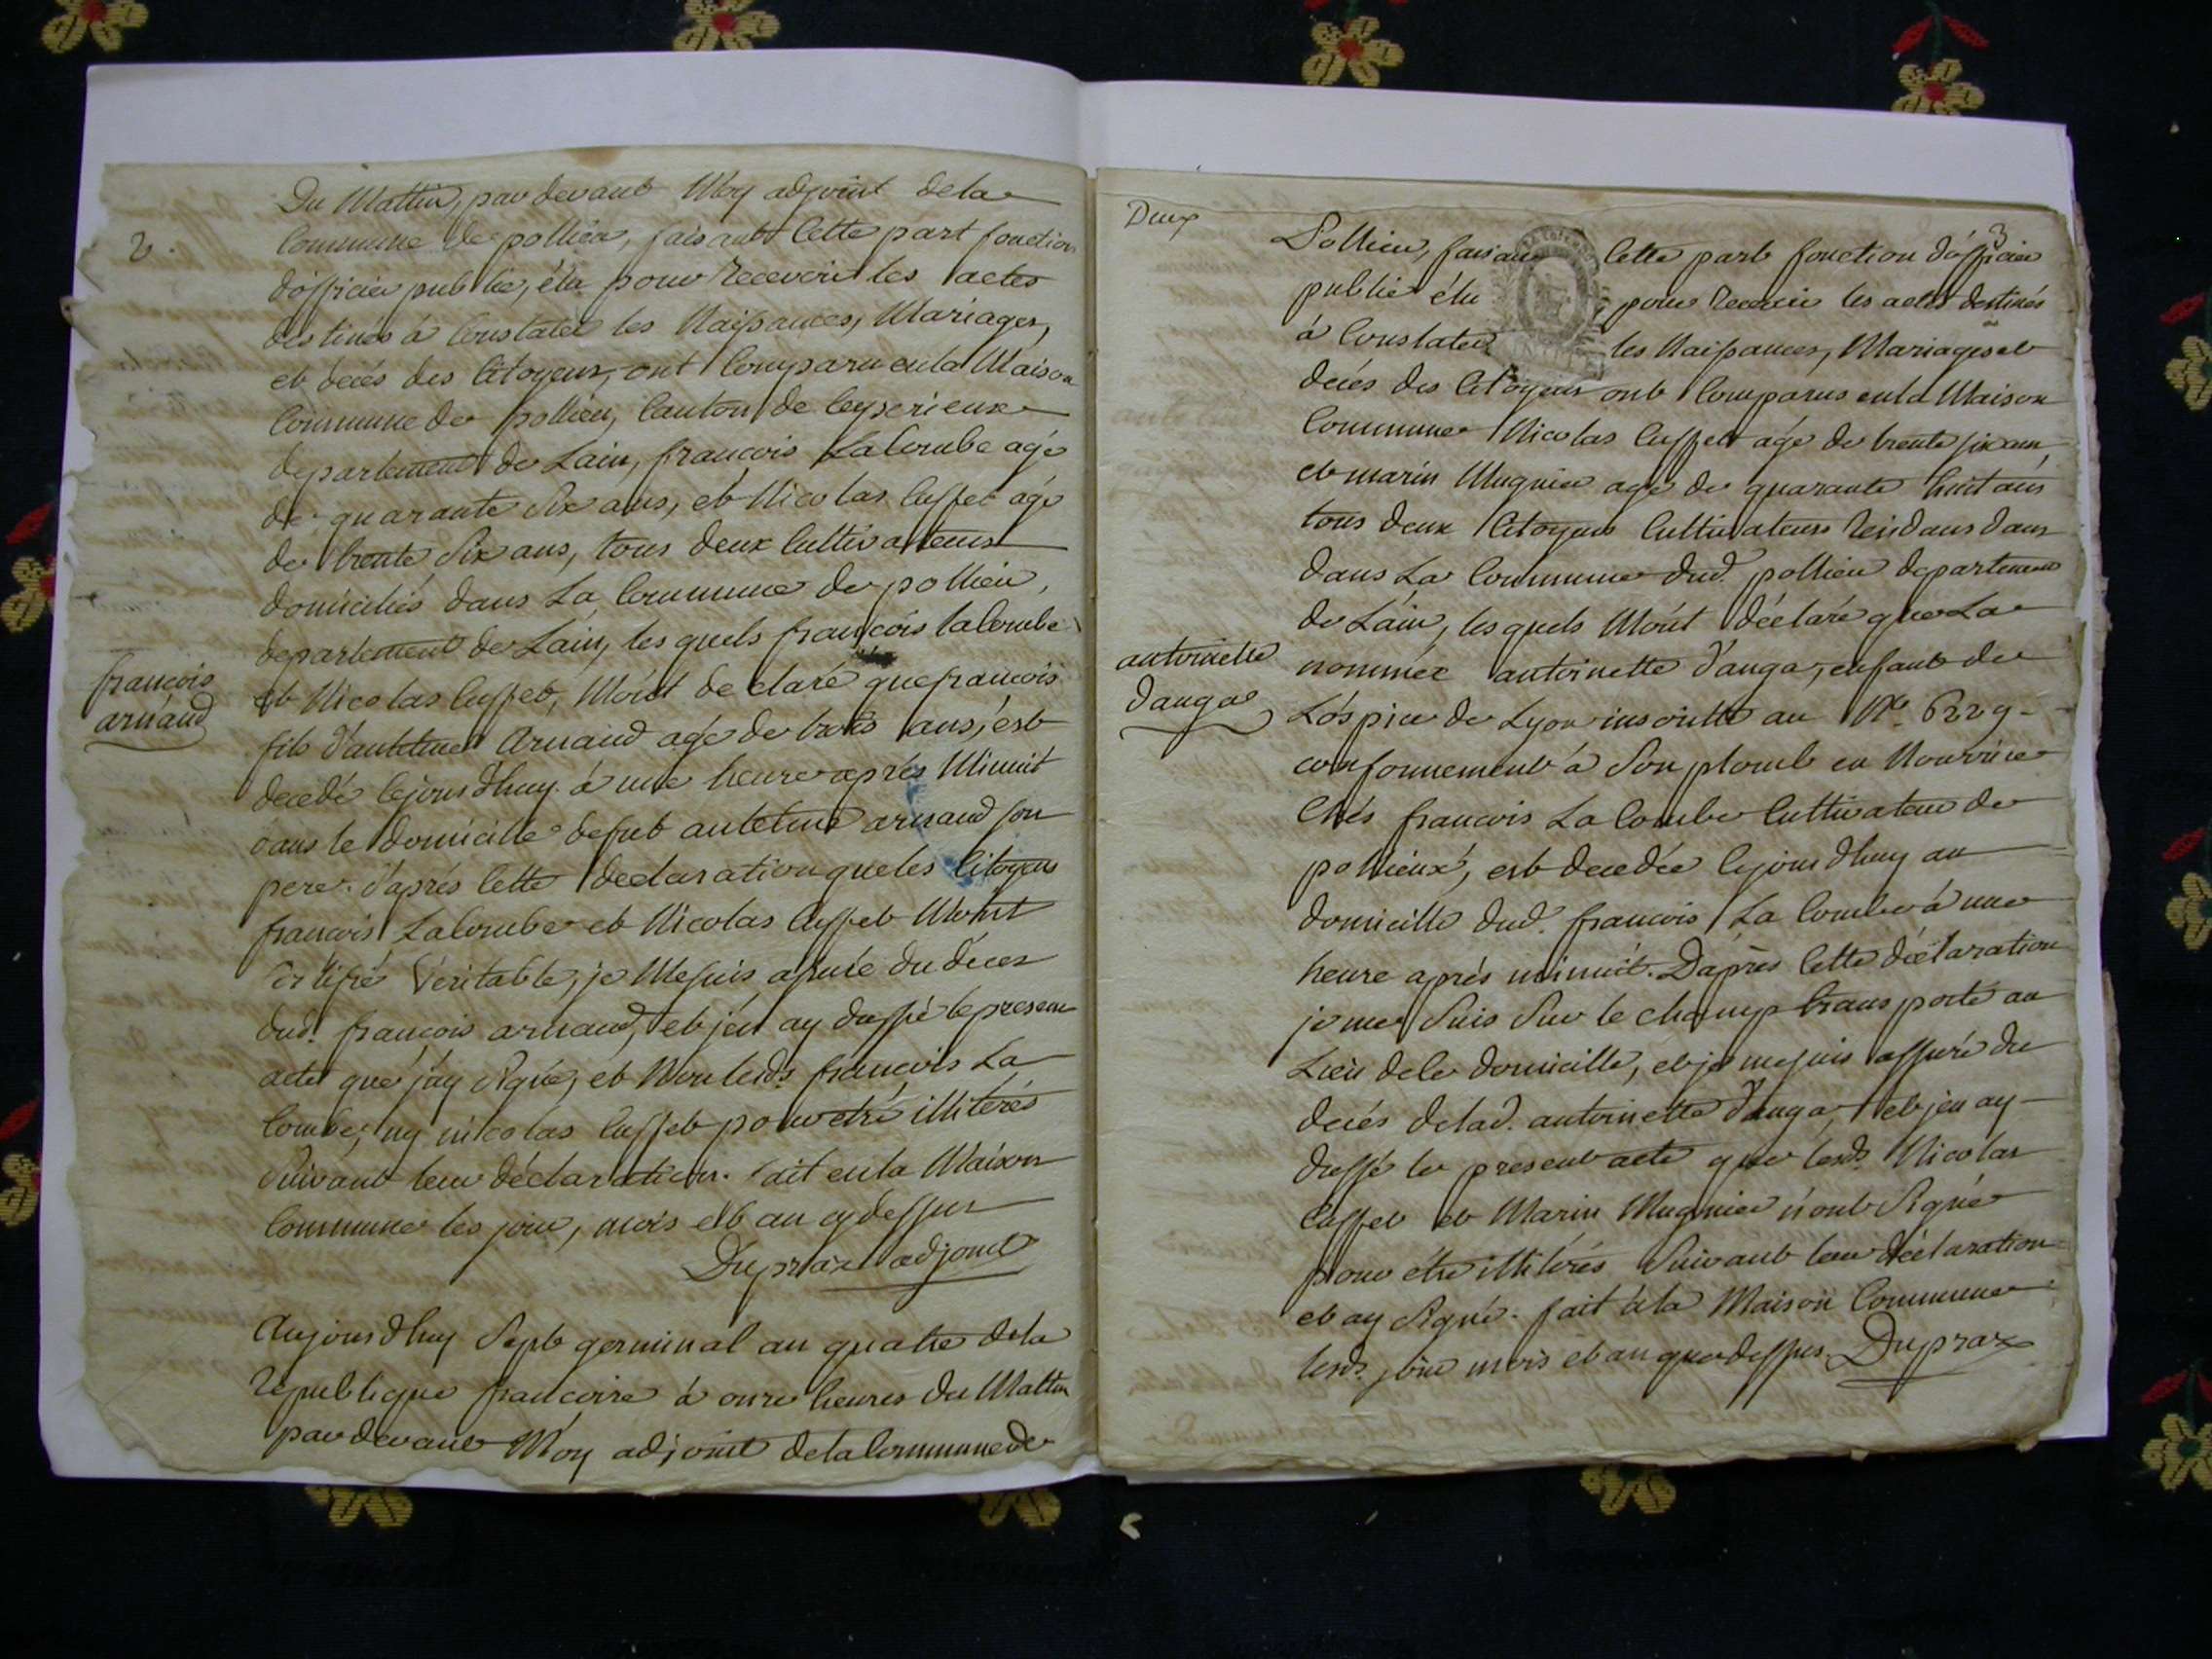 2.
Du Mattin, par devant Moy adjoint dela
Commune de pollieu, faisant Cette part fonction
d'officier public, élu pour Recevoir les actes
destinés à Constater les Naissances, Mariages,
et décés des Citoyens, ont Comparu en la Maison
Commune de pollieu, Canton de Ceyserieux
departement de Lain, francois Lalombe agé
de quarante Six ans, et Nicolas Cuffet agé
de trente Six ans, tous deux Cultivateurs
domiciliés dans La Commune de pollieu,
departement de Lain, les quels francois lalombe
et Nicolas Cuffet, M'ont declaré que francois
fils d'anteme Arnaud agé de trois ans, est
decedé cejourdhuy à une heure après Minuit
dans le domicille defut anteme arnaud son
pere. d'aprés Cette declaration que les Citoyens
francois Lalombe et Nicolas Cuffet M'ont
Certifié Veritable, je Mesuis assuré du déces
dud. françois arnaud, et j'en ay dressé le present
acte que j'ay signé, et Non lesds. francois La
lombe, ny nicolas Cuffet pour etre illiterés
Suivant leur déclaration. fait en la Maison
Commune les jour, mois et an cy dessus
Dupraz adjoint
françois
arnaud
Aujourdhuy Sept germinal an quatre dela
Republique francoise à onze heures du Mattin
pardevant Moy adjoint dela Commune de
Deux
3
Pollieu, faisant Cette part fonction d'officier
public élu pour Recevoir les actes destinés
à Constater les Naissances, Mariages et
decés des Citoyens ont Comparus en la Maison
Commune Nicolas Cuffet agé de trente six ans,
et marin Mugnier agé de quarante huit ans
tous deux Citoyens Cultivateurs Residans dans
dans La Commune dud. pollieu departement
de Lain, lesquels M'ont déclaré que La
nommée antoinette d'anga, enfant de
L'óspice de Lyon inscritte au No. 6229-
conformement à Son plomb en Nourrice
Chés francois La lombe Cultivateur de
pollieux, est decedée cejourdhuy au
domicille dud. francois La lombe à une
heure aprés minuit. D'aprés Cette déclaration
je me Suis Sur le champ transporté au
Lieu dele domicille, et je mesuis assuré du
decés delad. antoinette d'anga, et j'en ay
dressé le present acte que lesds. Nicolas
Cuffet et Marin Mugnier n'ont Signé
pour étre illiterés Suivant leur déclaration
et ay Signé. fait à la Maison Commune
lesds. jour mois et an que dessus. Dupraz
antoinette
danga